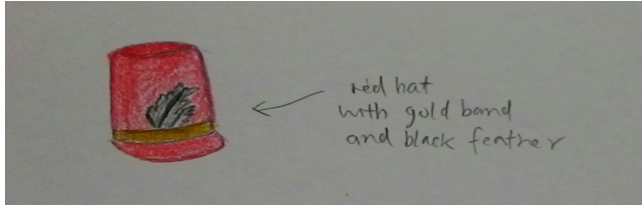 red hat
with gold band
and black feather